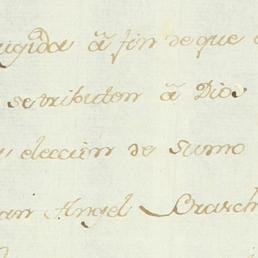 rigida â fin de que
se tributen â Dios
eleccion de sumo
Angel Brasch